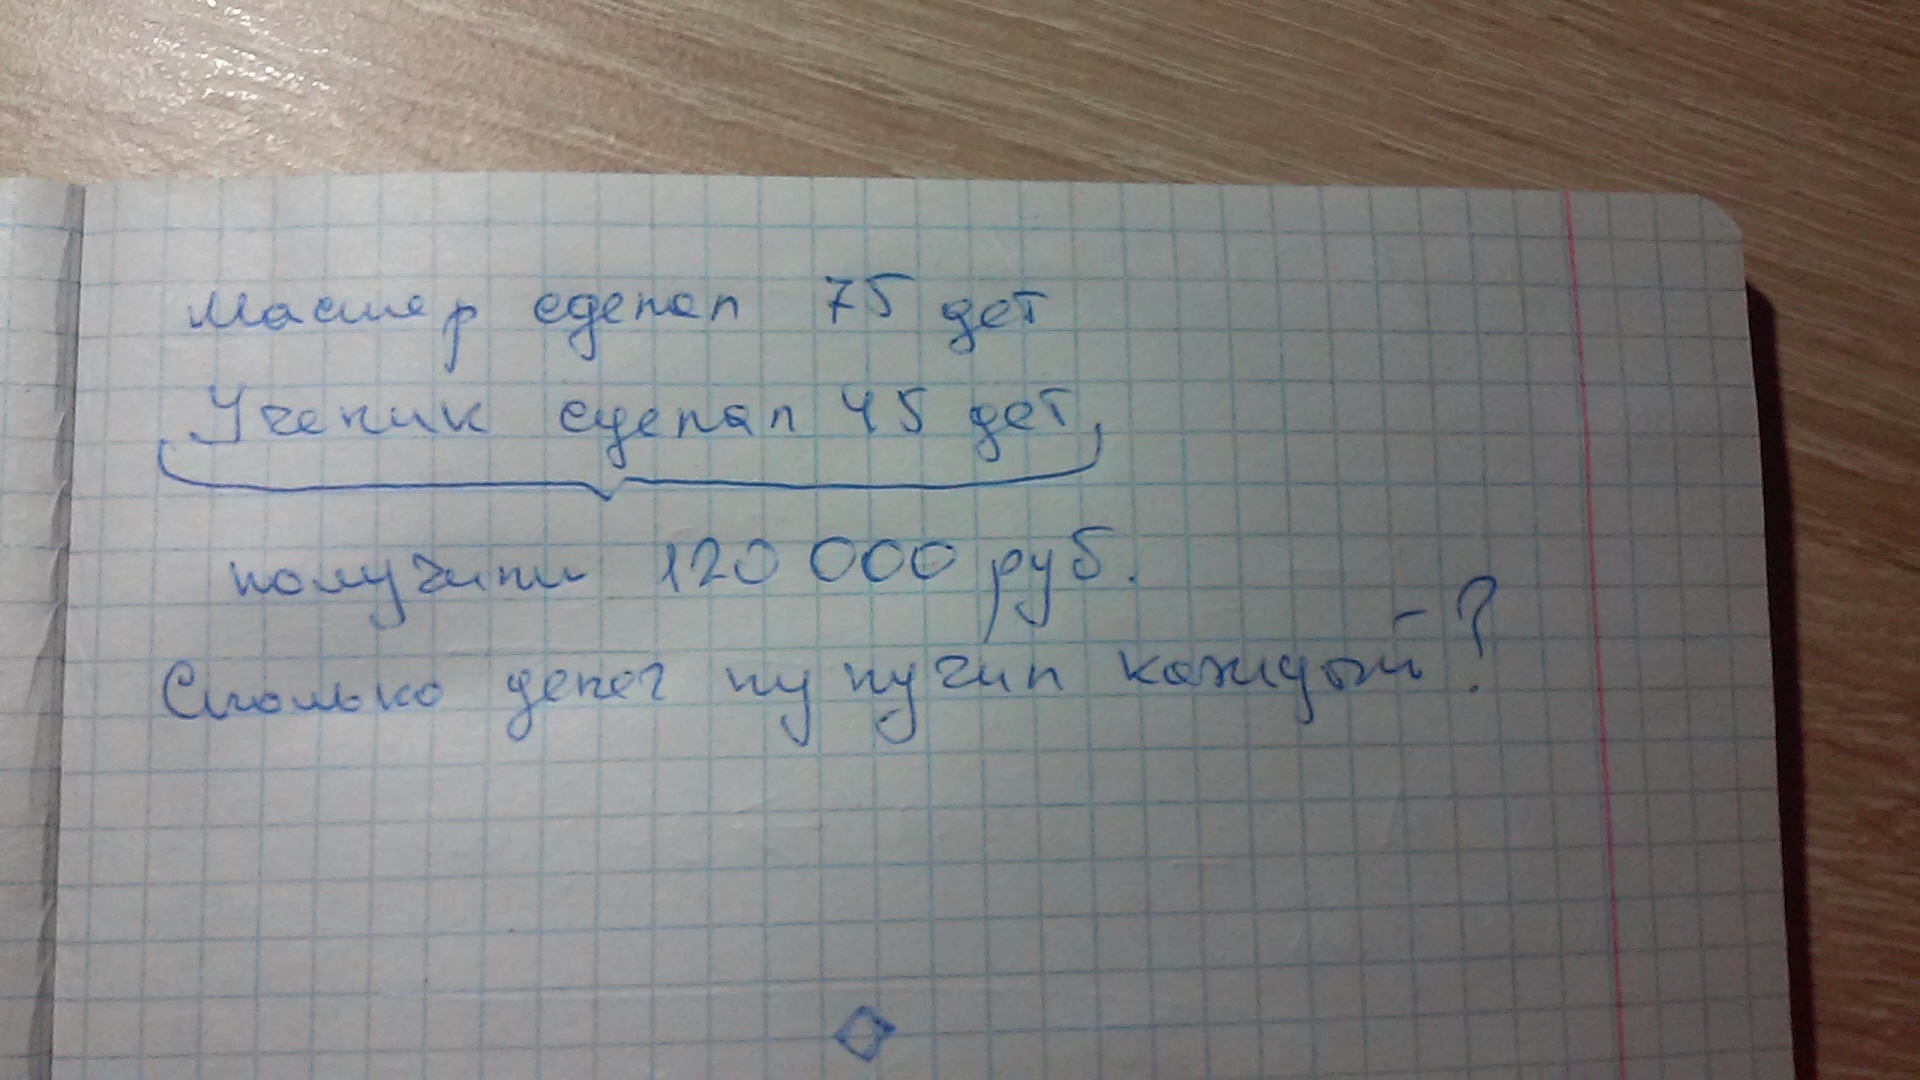 Мастер сделал 75 дет
Ученик сделал 45 дет,
получили 120 000 руб.
Сколько денег пулучил каждый - ?